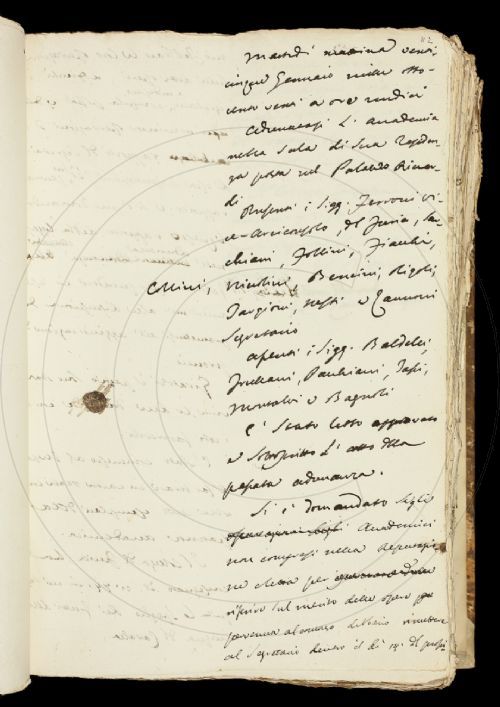 112
Martedì mattina venti
cinque Gennaio mille otto-
cento venti a ore undici
Adunatasi l'Accademia
nella Sala di sua Residen
za posta nel Palazzo Riccar-
di
Presenti i Sigg. Ferroni Vi-
ce-Arciconsolo, Del Furia, Sar-
chiani, Follini, Fiacchi,
Collini, Niccolini, Bencini, Rigoli,
Targioni, Nesti e Zannoni
Segretario
Assenti i Sigg. Baldelli,
Frullani, Pauliani,
Montalvi e Bagnoli
È stato letto approvato
e sottoscritto l'atto della
passata adunanza.
Si è domandato se gli
Accademici
non compresi nella deputazio
ne eletta per
riferire sul merito delle opere
al concorso debbano rimettere
al Segretario dentro il dì 15. di